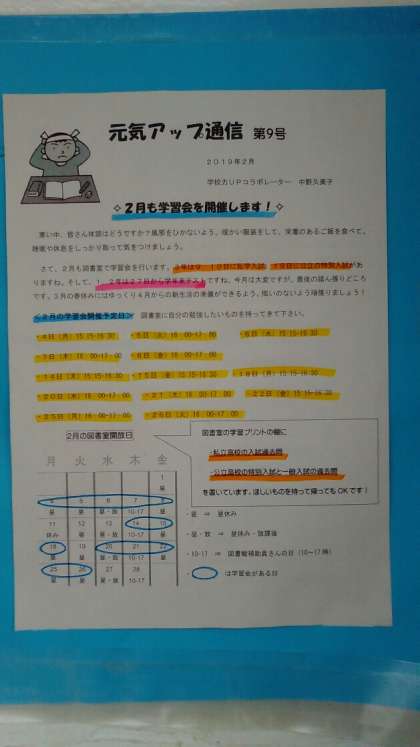 元気アップ通信 第9号
2019年2月
学校力UPコラボレーター 中野久美子
✧2月も学習会を開催します!✧
寒い中、皆さん体調はどうですか?風邪をひかないよう、暖かい服装をして、栄養のあるご飯を食べて、
睡眠や休息をしっかり取って気をつけましょう。
さて、2月も図書室で学習会を行います。
りますね。そして、1・2年は27日から学年末テストですね。今月は大変ですが、最後の踏ん張りどころ
です。3月の春休みにはゆっくり4月からの新生活の準備ができるよう、悔いのないよう頑張りましょう!
<2月の学習会開催予定日> 図書室に自分の勉強したいものを持ってきて下さい。
・4日(月) 15:15-16:30 ・5日(火) 16:00-17:00 ・6日(水) 15:15-16:30
・7日(木) 16:00-17:00 ・8日(金) 16:00-17:00
・14日(木) 15:15-16:30 ・15日(金) 15:15-16:30 ・18日(月) 15:15-16:30
・20日(水) 16:00-17:00 ・21日(木) 16:00-17:00 ・22日(金) 15:15-16:30
・25日(月) 16:00-17:00 ・26日(火) 16:00-17:00
2月の図書室開放日
月 火 水 木 金
1
昼
4 5 6 7 8
昼 昼 昼・放 10-17 昼
11 12 13 14 15
休み 昼 昼・放 10-17 昼
18 19 20 21 22
昼 昼 昼・放 10-17 昼
25 26 27 28
昼 昼 昼・放 10-17
図書室の学習プリントの棚に
・私立高校の入試過去問
・公立高校の特別入試と一般入試の過去問
を置いています。ほしいものを持って帰ってもOKです!
・昼 ⇒ 昼休み
・昼・放 ⇒ 昼休み・放課後
・10-17 ⇒ 図書館補助員さんの日(10〜17時)
・ は学習会がある日